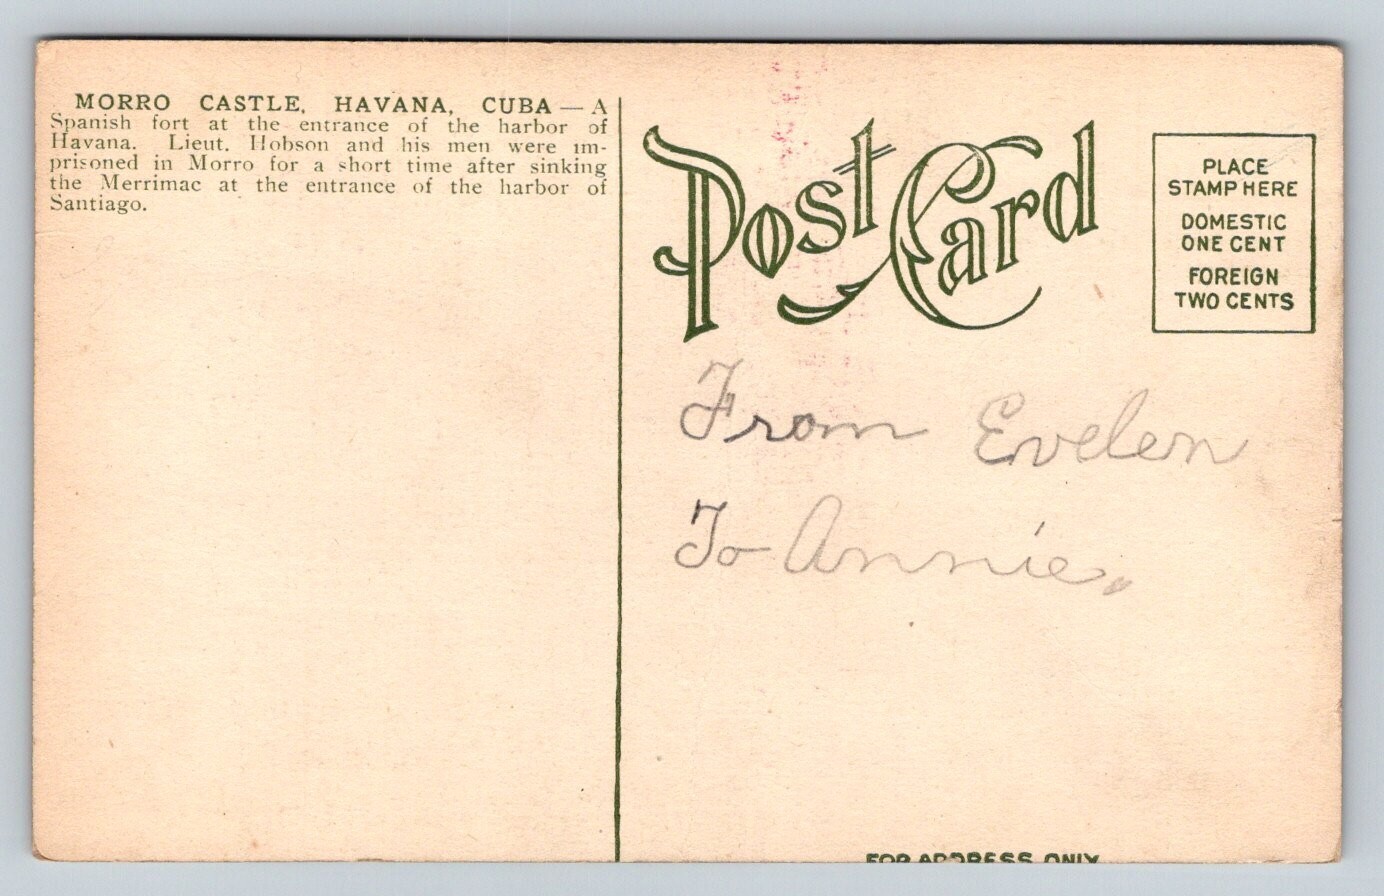 MORRO CASTLE, HAVANA, CUBA — A
Spanish fort at the entrance of the harbor of
Havana. Lieut. Hobson and his men were im-
prisoned in Morro for a short time after sinking
the Merrimac at the entrance of the harbor of
Santiago.
Post Card
PLACE
STAMP HERE
DOMESTIC
ONE CENT
FOREIGN
TWO CENTS
From Evelen
To Annie.
FOR ADDRESS ONLY